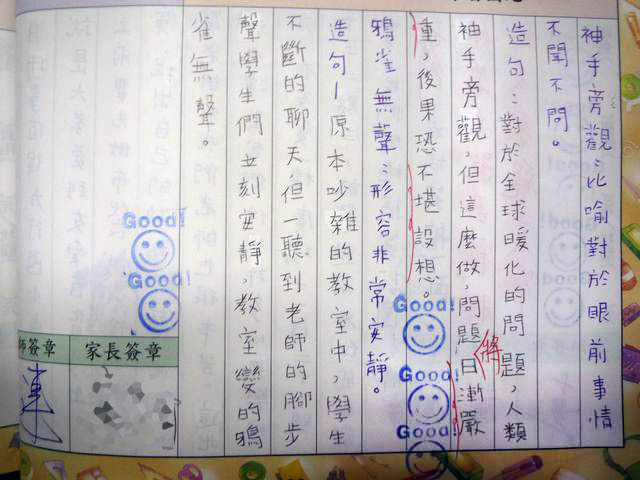 袖手旁觀：比喻對於眼前事情
不聞不問。
造句：對於全球暖化的問題，人類
袖手旁觀，但這麼做，問題日漸嚴
將
重，後果恐不堪設想。
鴉雀無聲：形容非常安靜。
造句－原本吵雜的教室中，學生
不斷的聊天，但一聽到老師的腳步
聲學生們立刻安靜，教室變的鴉
雀無聲。
Good!
Good!
Good!
Good!
Good!
家長簽章
師簽章